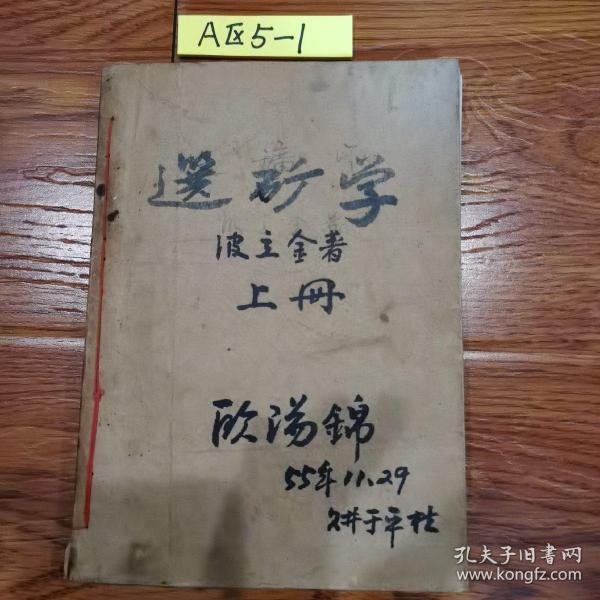 A区5-1
选矿学
波立金著
上册
欧阳锦
55年11.29
于平桂
孔夫子旧書网
www.kongfz.com